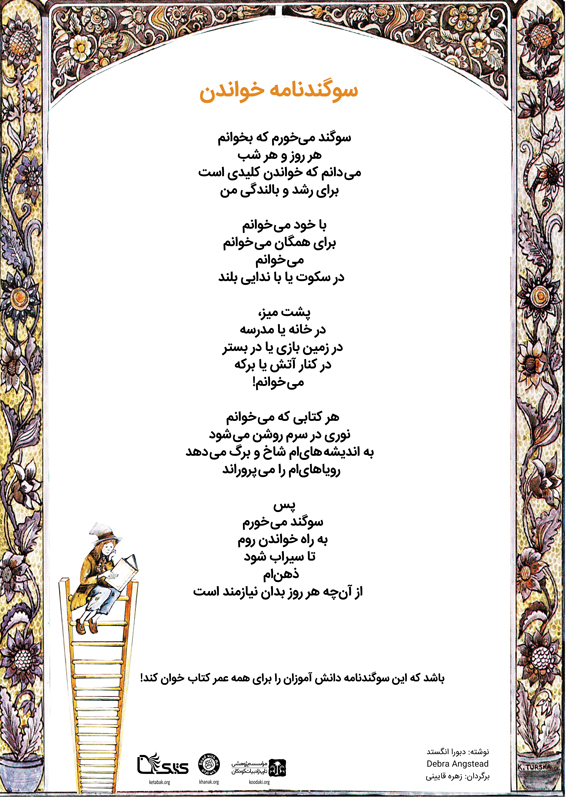 سوگندنامه خواندن
سوگند می‌خورم که بخوانم
هر روز و هر شب
می‌دانم که خواندن کلیدی است
برای رشد و بالندگی من
با خود می‌خوانم
برای همگان می‌خوانم
می‌خوانم
در سکوت یا با ندایی بلند
پشت میز،
در خانه یا مدرسه
در زمین بازی یا در بستر
در کنار آتش یا برکه
می‌خوانم!
هر کتابی که می‌خوانم
نوری در سرم روشن می‌شود
به اندیشه‌های‌ام شاخ و برگ می‌دهد
رویاهای‌ام را می‌پروراند
پس
سوگند می‌خورم
به راه خواندن روم
تا سیراب شود
ذهن‌ام
از آن‌چه هر روز بدان نیازمند است
باشد که این سوگندنامه دانش آموزان را برای همه عمر کتاب خوان کند!
نوشته: دبورا انگستد
Debra Angstead
برگردان: زهره قایینی
K. TURSKA
کتابک
ketabak.org
khanak.org
موسسه پژوهشی
تاریخ ادبیات کودکان
koodaki.org